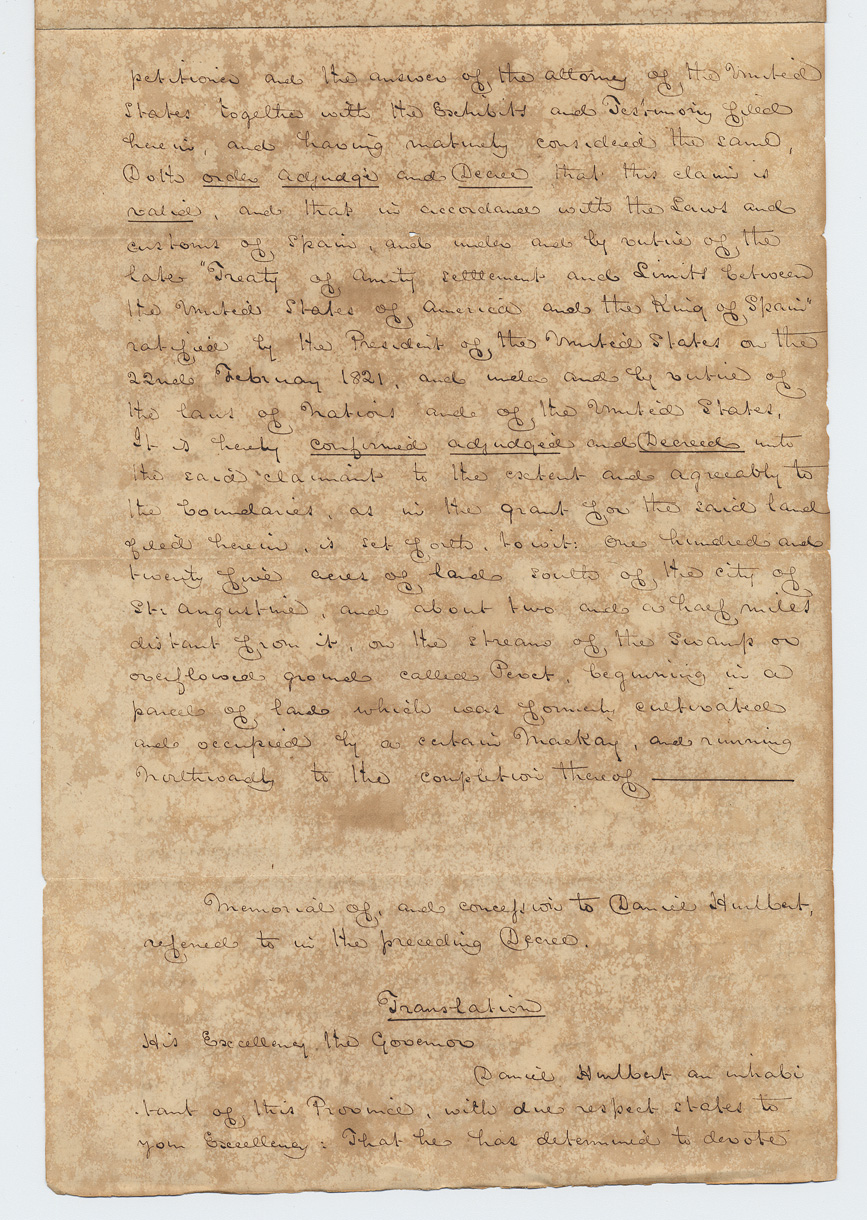 petitioner and the answer of, the attorney of, the United
States together with the Exhibits and Testimony filed
herein, and having maturely considered the same,
Doth order adjudge and Decree that this claim is
valid, and that in accordance with the Laws and
customs of Spain, and under and by virtue of, the
late "Treaty of Amity settlement and Limits between
the United States of, America and the King of Spain"
ratified by the President of, the United States on the
22nd February 1821, and under and by virtue of
the laws of Nations and of, the United States,
It is hereby confirmed adjudged and Decreed unto
the said claimant to the extent and agreeably to
the boundaries, as in the grant for the said land
filed herein, is set forth, to wit: One hundred and
twenty five acres of land south of, the city of
St: Augustine, and about two and a half miles
distant from it, on the stream of, the Swamp or
overflowed ground called Perct, beginning in a
parcel of, land which was formerly cultivated
and occupied by a certain Mackay, and running
Northwardly to the completion thereof,
Memorial of, and concession to Daniel Hurlbert,
referred to in the preceding Decree.
Translation
His Excellency the Governor
Daniel Hurlbert an inhabi
tant of, this Province, with due respect states to
your Excellency: That he has determined to devote